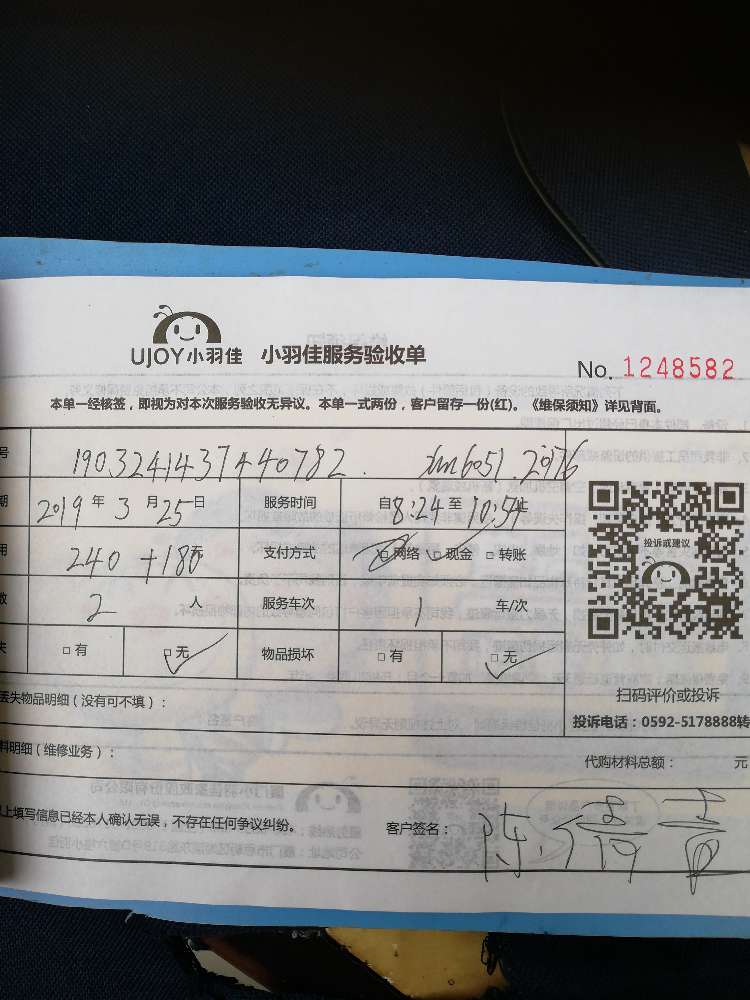 UJOY小羽佳 小羽佳服务验收单
No. 1248582
本单一经核签，即视为对本次服务验收无异议。本单一式两份，客户留存一份(红)。《维保须知》详见背面。
号 1903241437440782. xm6051.2976
期 2019年3月25日 服务时间 自8:24至10:54
用 240+180元 支付方式 □网络 □现金 □转账
数 2人 服务车次 1 车/次
失 □有 □无 物品损坏 □有 □无
投诉或建议
扫码评价或投诉
丢失物品明细（没有可不填）：
投诉电话：0592-5178888转
料明细（维修业务）：
代购材料总额： 元
以上填写信息已经本人确认无误，不存在任何争议纠纷。
客户签名： 陈